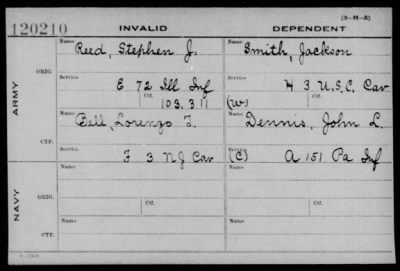 (3-88-5)
120210 INVALID DEPENDENT
Name Name
Reed, Stephen J. Smith, Jackson
ORIG. Service Service
E 72 Ill Inf H 3 U.S.C. Cav
Ctf. Ctf.
ARMY
103.311 (W)
Name Name
Bell, Lorenzo F. Dennis, John L.
CTF. Service Service
F 3 NJ Cav (C) A 151 Pa Inf
Name Name
ORIG. Service Service
Ctf. Ctf.
NAVY
Name Name
CTF.